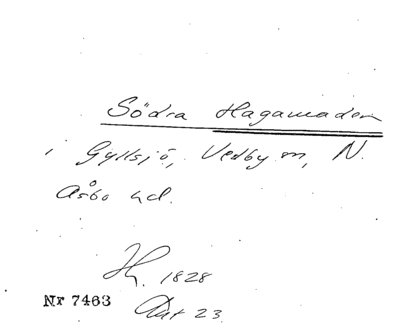 Södra Hagamaden
i Gyllsjö, Vedby sn, N.
Åsbo hd.
Hy. 1828
Akt 23
Nr 7463